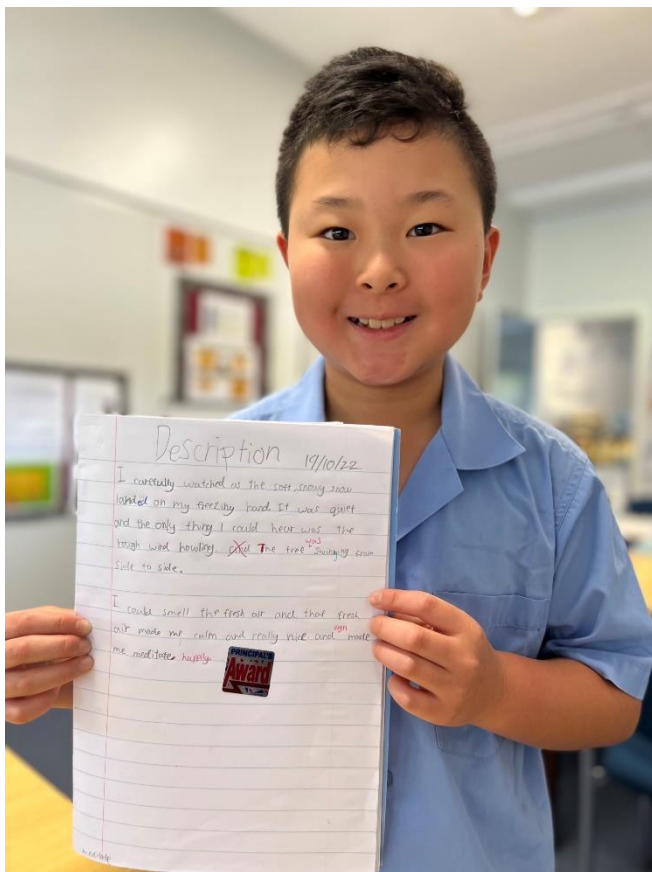 Description 19/10/22
I carefully watched as the soft, snowy snow
landed on my freezing hand. It was quiet
and the only thing I could hear was the
tough wind howling. and The tree was swinging from
side to side.
I could smell the fresh air and that fresh
air made me calm and really nice and made
me meditate. happily
PRINCIPAL'S
Award
meditate